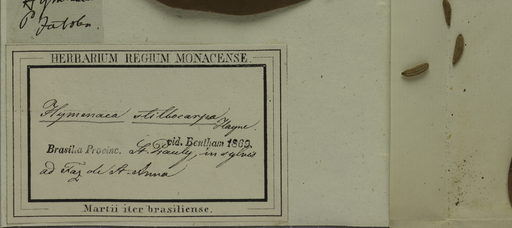 P. Jatoba.
HERBARIUM REGIUM MONACENSE.
Hymenaea stilbocarpa
Hayne.
vid. Bentham 1869.
Brasilia Provinc. St. Pauly, in sylvis
ad Faz de St. Anna
Martii iter brasiliense.